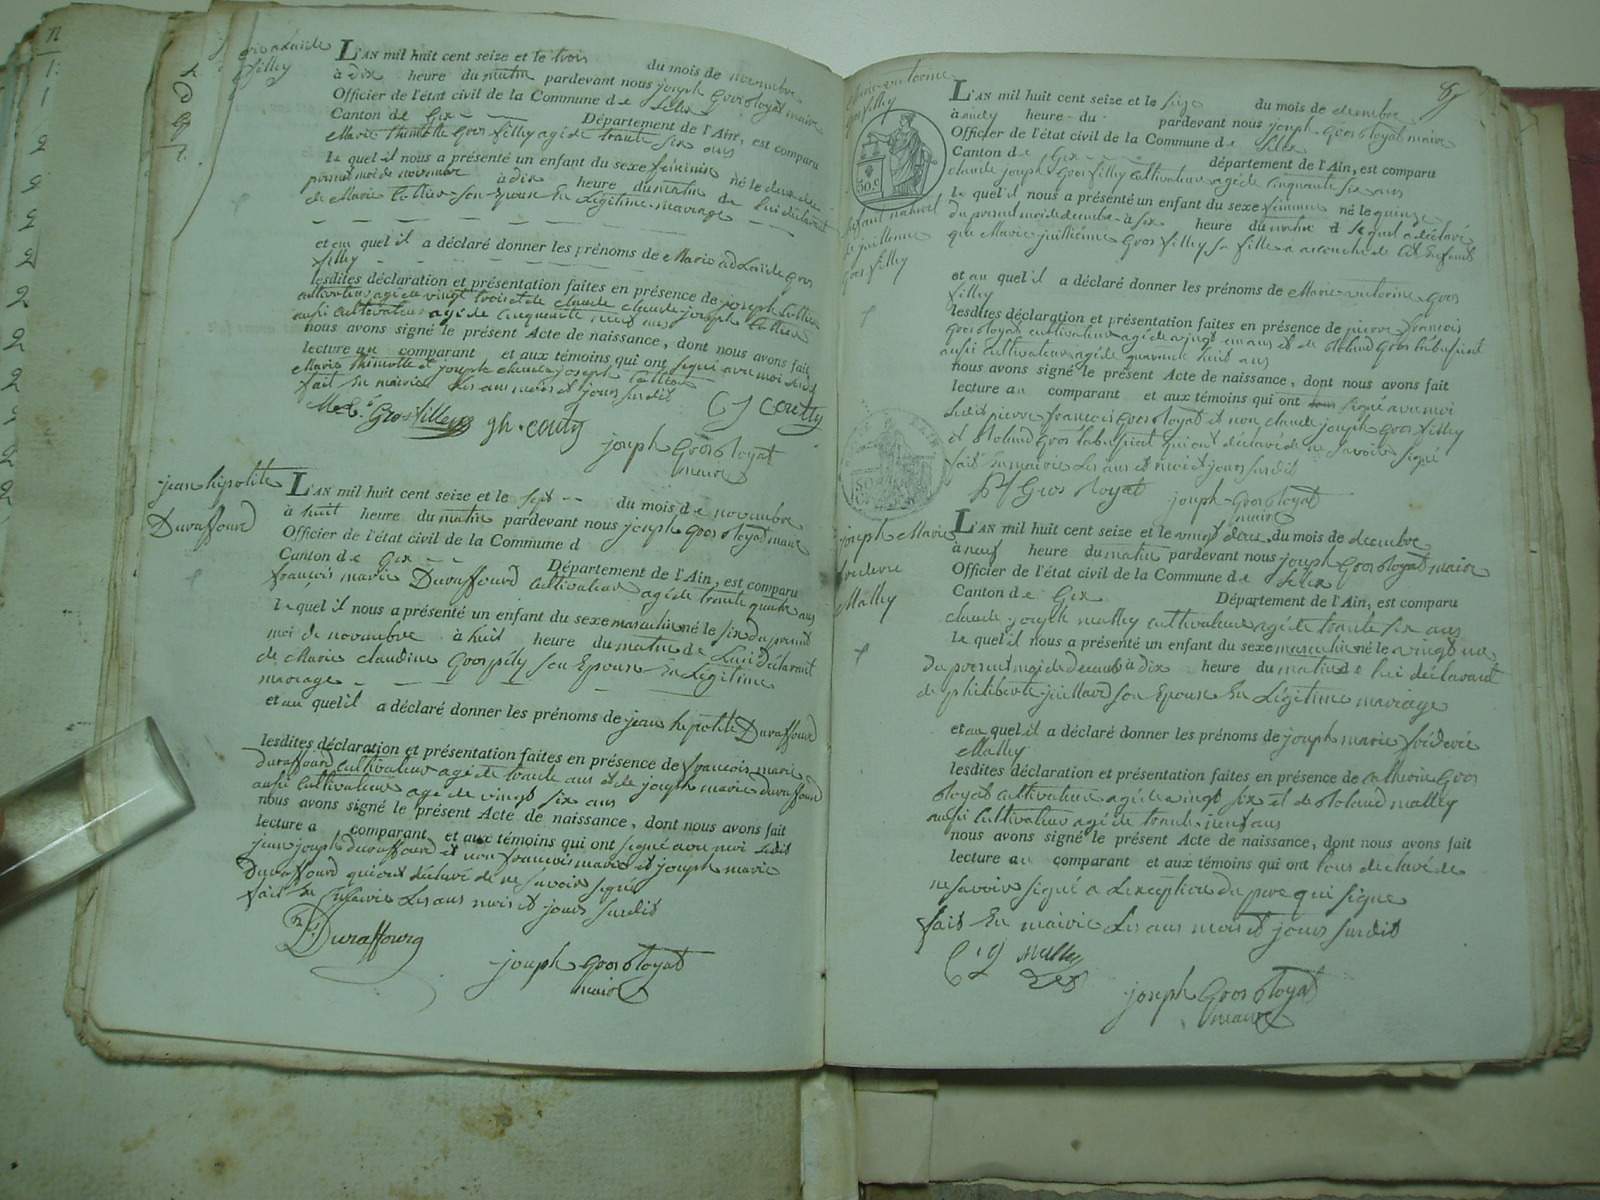 filley
L'AN mil huit cent seize et le trois du mois de novembre
à dix heure du matin pardevant nous joseph Gros Royat maire
Officier de l'état civil de la Commune de
Canton de Gex Département de l'Ain, est comparu
Marie thimotté Gros filley agé de trante six ans
Le quel il nous a présenté un enfant du sexe féminin né le deux du
présent moi de novembre à dix heure du matin de lui déclarant
de Marie son Epouse En Légitime mariage
et au quel il a déclaré donner les prénoms de Marie adélaïde Gros
filley
lesdites déclaration et présentation faites en présence de joseph
cultivateur agé de vingt trois et de claude joseph
aussi cultivateur agé de cinquante neuf ans
nous avons signé le présent Acte de naissance, dont nous avons fait
lecture au comparant et aux témoins qui ont signé avec moi
Marie thimotté et joseph claude joseph
fait En mairie Les ans mois et jours susdit
Gros filley
joseph Gros Royat
maire
jean hipolite
Duraffourd
L'AN mil huit cent seize et le sept du mois de novembre
à huit heure du matin pardevant nous joseph Gros Royat maire
Officier de l'état civil de la Commune d
Canton de Gex Département de l'Ain, est comparu
françois marie Duraffourd cultivateur agé de trante quatre ans
Le quel il nous a présenté un enfant du sexe masculin né le six du présent
moi de novembre à huit heure du matin de Lui déclarant
de Marie claudine Gros pély son Epouse En Légitime
mariage
et au quel il a déclaré donner les prénoms de jean hipolite Duraffourd
lesdites déclaration et présentation faites en présence de françois marie
duraffourd cultivateur agé de trante ans et de joseph marie duraffourd
aussi cultivateur agé de vingt six ans
nous avons signé le présent Acte de naissance, dont nous avons fait
lecture a comparant et aux témoins qui ont signé avec moi
jean joseph duraffourd et non françois marie et joseph marie
Duraffourd qui ont déclaré de ne savoir signé
fait En Mairie Les ans mois et jours susdit
Duraffourg
joseph Gros Royat
maire
87
Marie victorine
Gros filley
50 c
Enfant naturel
de juillenne
Gros filley
L'AN mil huit cent seize et le du mois de decembre
à heure du pardevant nous joseph Gros Royat maire
Officier de l'état civil de la Commune de
Canton de Gex département de l'Ain, est comparu
claude joseph Gros filley cultivateur agé de cinquante six ans
Le quel il nous a présenté un enfant du sexe féminin né le quinze
du présent moi de decembre à six heure du matin Lequel a déclaré
que Marie juillienne Gros filley sa fille a accouché de cet Enfant
et au quel il a déclaré donner les prénoms de Marie victorine Gros
filley
lesdites déclaration et présentation faites en présence de pierre françois
Gros Royat cultivateur agé de vingt un ans et de Roland Gros
aussi cultivateur agé de quarante huit ans
nous avons signé le présent Acte de naissance, dont nous avons fait
lecture au comparant et aux témoins qui ont signé avec moi
Ledit pierre françois Gros Royat et non claude joseph Gros filley
et Roland Gros qui ont déclaré de ne savoir signé
fait En mairie Les ans et moi et jours susdit
Gros Royat joseph Gros Royat
maire
joseph Marie
fréderic
Malley
L'AN mil huit cent seize et le vingt deux du mois de decembre
à neuf heure du matin pardevant nous joseph Gros Royat maire
Officier de l'état civil de la Commune de
Canton de Gex Département de l'Ain, est comparu
claude joseph malley cultivateur agé de trante six ans
Le quel il nous a présenté un enfant du sexe masculin né le vingt un
du présent moi de Decemb à dix heure du matin de lui déclarant
de philiberte juillard son Epouse En Légitime mariage
et au quel il a déclaré donner les prénoms de joseph marie fréderic
Malley
lesdites déclaration et présentation faites en présence de Gros
Royat cultivateur agé de vingt six et de Roland malley
aussi cultivateur agé de trante neuf ans
nous avons signé le présent Acte de naissance, dont nous avons fait
lecture au comparant et aux témoins qui ont tous declaré de
ne savoir signé a L'exception du père qui signe
fait En mairie Les ans mois et jours susdit
joseph Gros Royat
maire